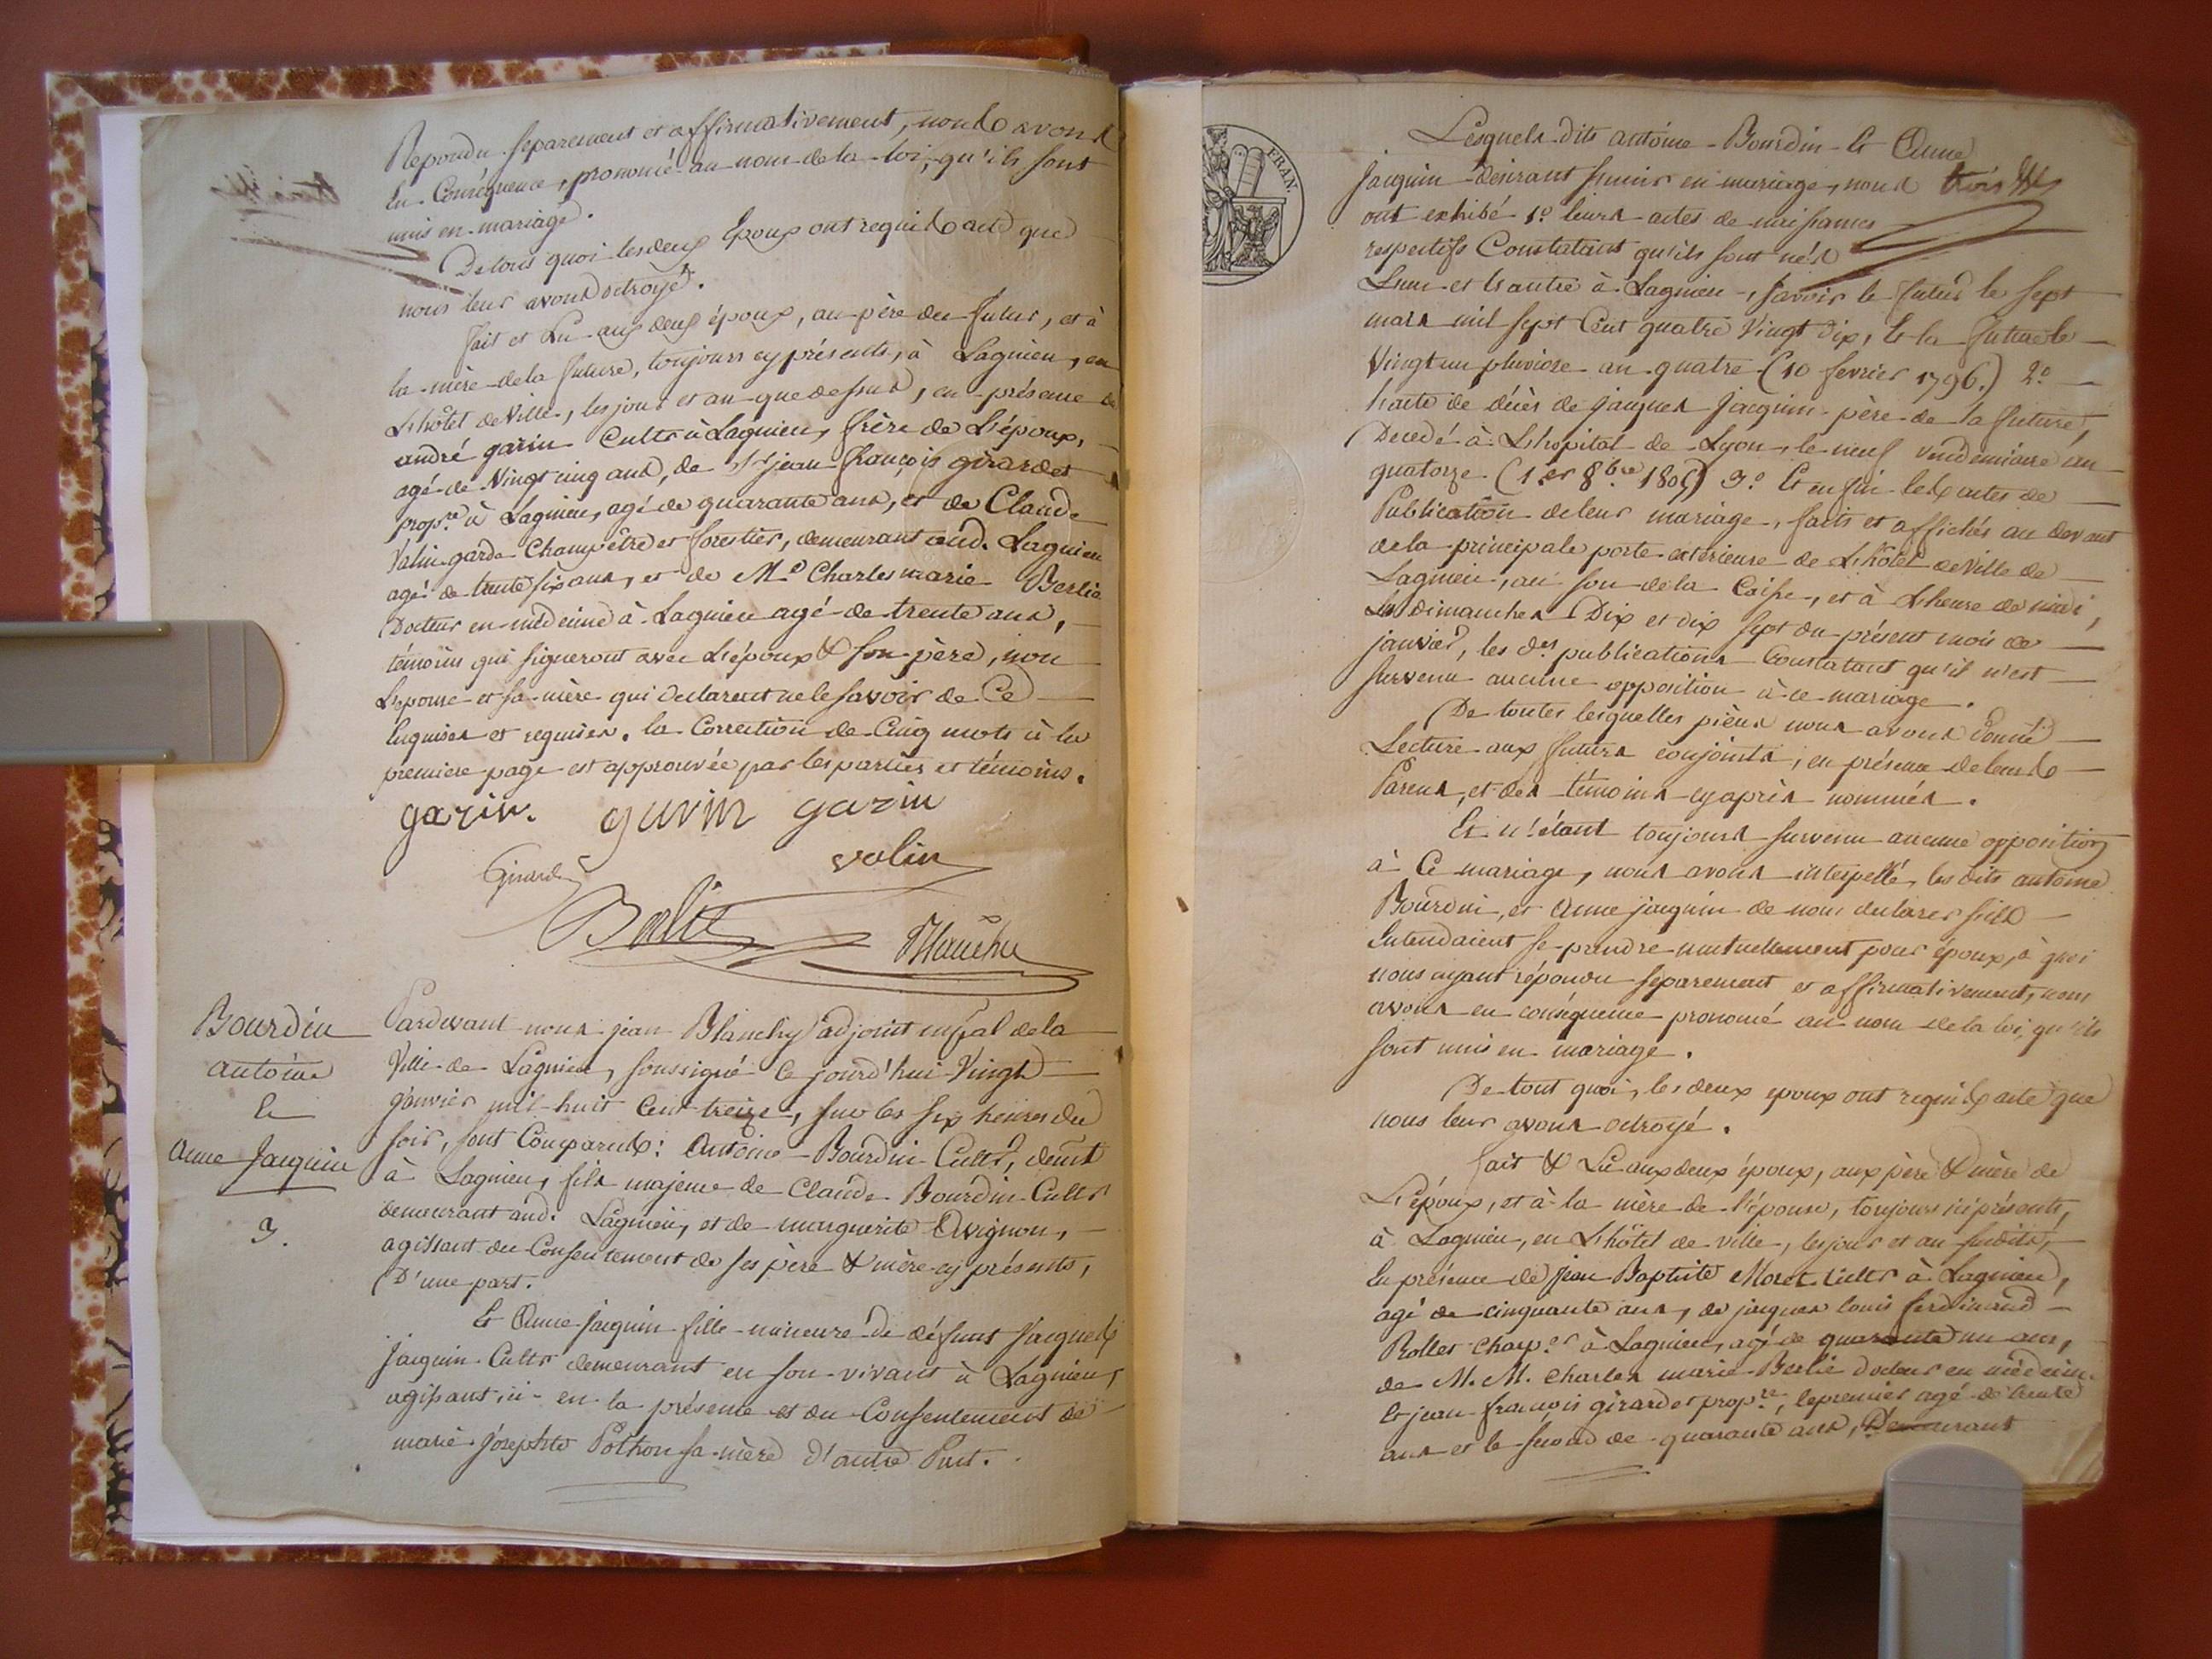 Repondu separement et affirmativement, nous avons
En Conséquence, prononcé au nom de la loi, qu'ils sont
unis en mariage.
De tous quoi les deux Epoux ont requis acte que
nous leur avons octroyé.
fait et Lu aux deux époux, au père du futur, et à
la mère de la future, toujours cy présents, à Lagnieu, en
L'hôtel de Ville, les jour et an que dessus, en présence de
andré garin Cultr à Lagnieu, frère de L'époux,
agé de Vingt cinq ans, de Sr jean françois girardet
propre à Lagnieu, agé de quarante ans, et de Claude
Valin garde Champêtre et forestier, demeurant aud. Lagnieu
agé de trente six ans, et de Mr Charles marie Berlie
Docteur en médecine à Lagnieu agé de trente ans,
témoins qui signeront avec L'époux & son père, non
L'epouse et sa mère qui declarent ne le savoir de Ce
Enquises et requises. la Correction de Cinq mots à la
premiere page est approuvée par les parties et témoins.
garin. garin garin
valin
Girardet
Berlie
Blanchy
Bourdin
antoine
Et
Anne Jacquin
3.
Pardevant nous jean Blanchy adjoint mpal de la
Ville de Lagnieu, soussigné Ce jourd'hui Vingt
janvier mil huit Cent treize, sur les six heures du
soir, sont Comparus: Antoine Bourdin Cultr, demt
à Lagnieu, fils majeur de Claude Bourdin Cultr
demeurant aud. Lagnieu, et de marguerite Avignon,
agissant du Consentement de ses père & mère cy présents,
D'une part.
Et Anne Jacquin fille mineure de défunt Jacques
Jacquin Cultr demeurant en son vivant à Lagnieu,
agissant ici en la présence et du Consentement de
marie josephte Pothon sa mère d'autre Part.
FRAN.
Lesquels dits antoine Bourdin Et Anne
Jacquin desirant s'unir en mariage, nous trois
ont exhibé 1o leurs actes de naissances
respectifs Constatant qu'ils sont nés
L'un et L'autre à Lagnieu, savoir le futur le sept
mars mil sept Cent quatre Vingt dix, Et la future le
Vingt un pluviose an quatre (10 fevrier 1796.) 2o
L'acte de décès de jacques jacquin père de la future,
Decedé à L'hopital de Lyon, le neuf vendemiaire an
quatorze (1er 8bre 1805) 3o Et enfin les actes de
Publication de leur mariage, faits et affichés au devant
de la principale porte extérieure de L'hôtel de Ville de
Lagnieu, au son de la Caisse, et à L'heure de midi,
Les dimanches Dix et dix sept du présent mois de
janvier, les des publications Constatant qu'il n'est
survenu aucune opposition à ce mariage.
De toutes lesquelles pièces nous avons donné
Lecture aux futurs conjoints, en présence de leurs
Parens, et des témoins cy après nommés.
Et n'étant toujours survenu aucune opposition
à Ce mariage, nous avons interpellé, les dits antoine
Bourdin, et Anne jacquin de nous declarer s'ils
Entendaient se prendre mutuellement pour époux, à quoi
nous ayant répondu separement et affirmativement, nous
avons en conséquence prononcé au nom de la loi, qu'ils
sont unis en mariage.
De tout quoi, les deux epoux ont requis acte que
nous leur avons octroyé.
fait & Lu aux deux époux, aux père & mère de
L'époux, et à la mère de l'épouse, toujours ici présents,
à Lagnieu, en L'hôtel de ville, les jour et an susdits,
En présence de Jean Baptiste Moret Cultr à Lagnieu,
agé de cinquante ans, de jacques louis ferdinand
Rollet Charp.er à Lagnieu, agé de quarante un ans,
de M. M. Charles marie Berlie docteur en médecine
Et jean françois girardet propre, le premier agé de trente
ans et le second de quarante ans, Demeurant